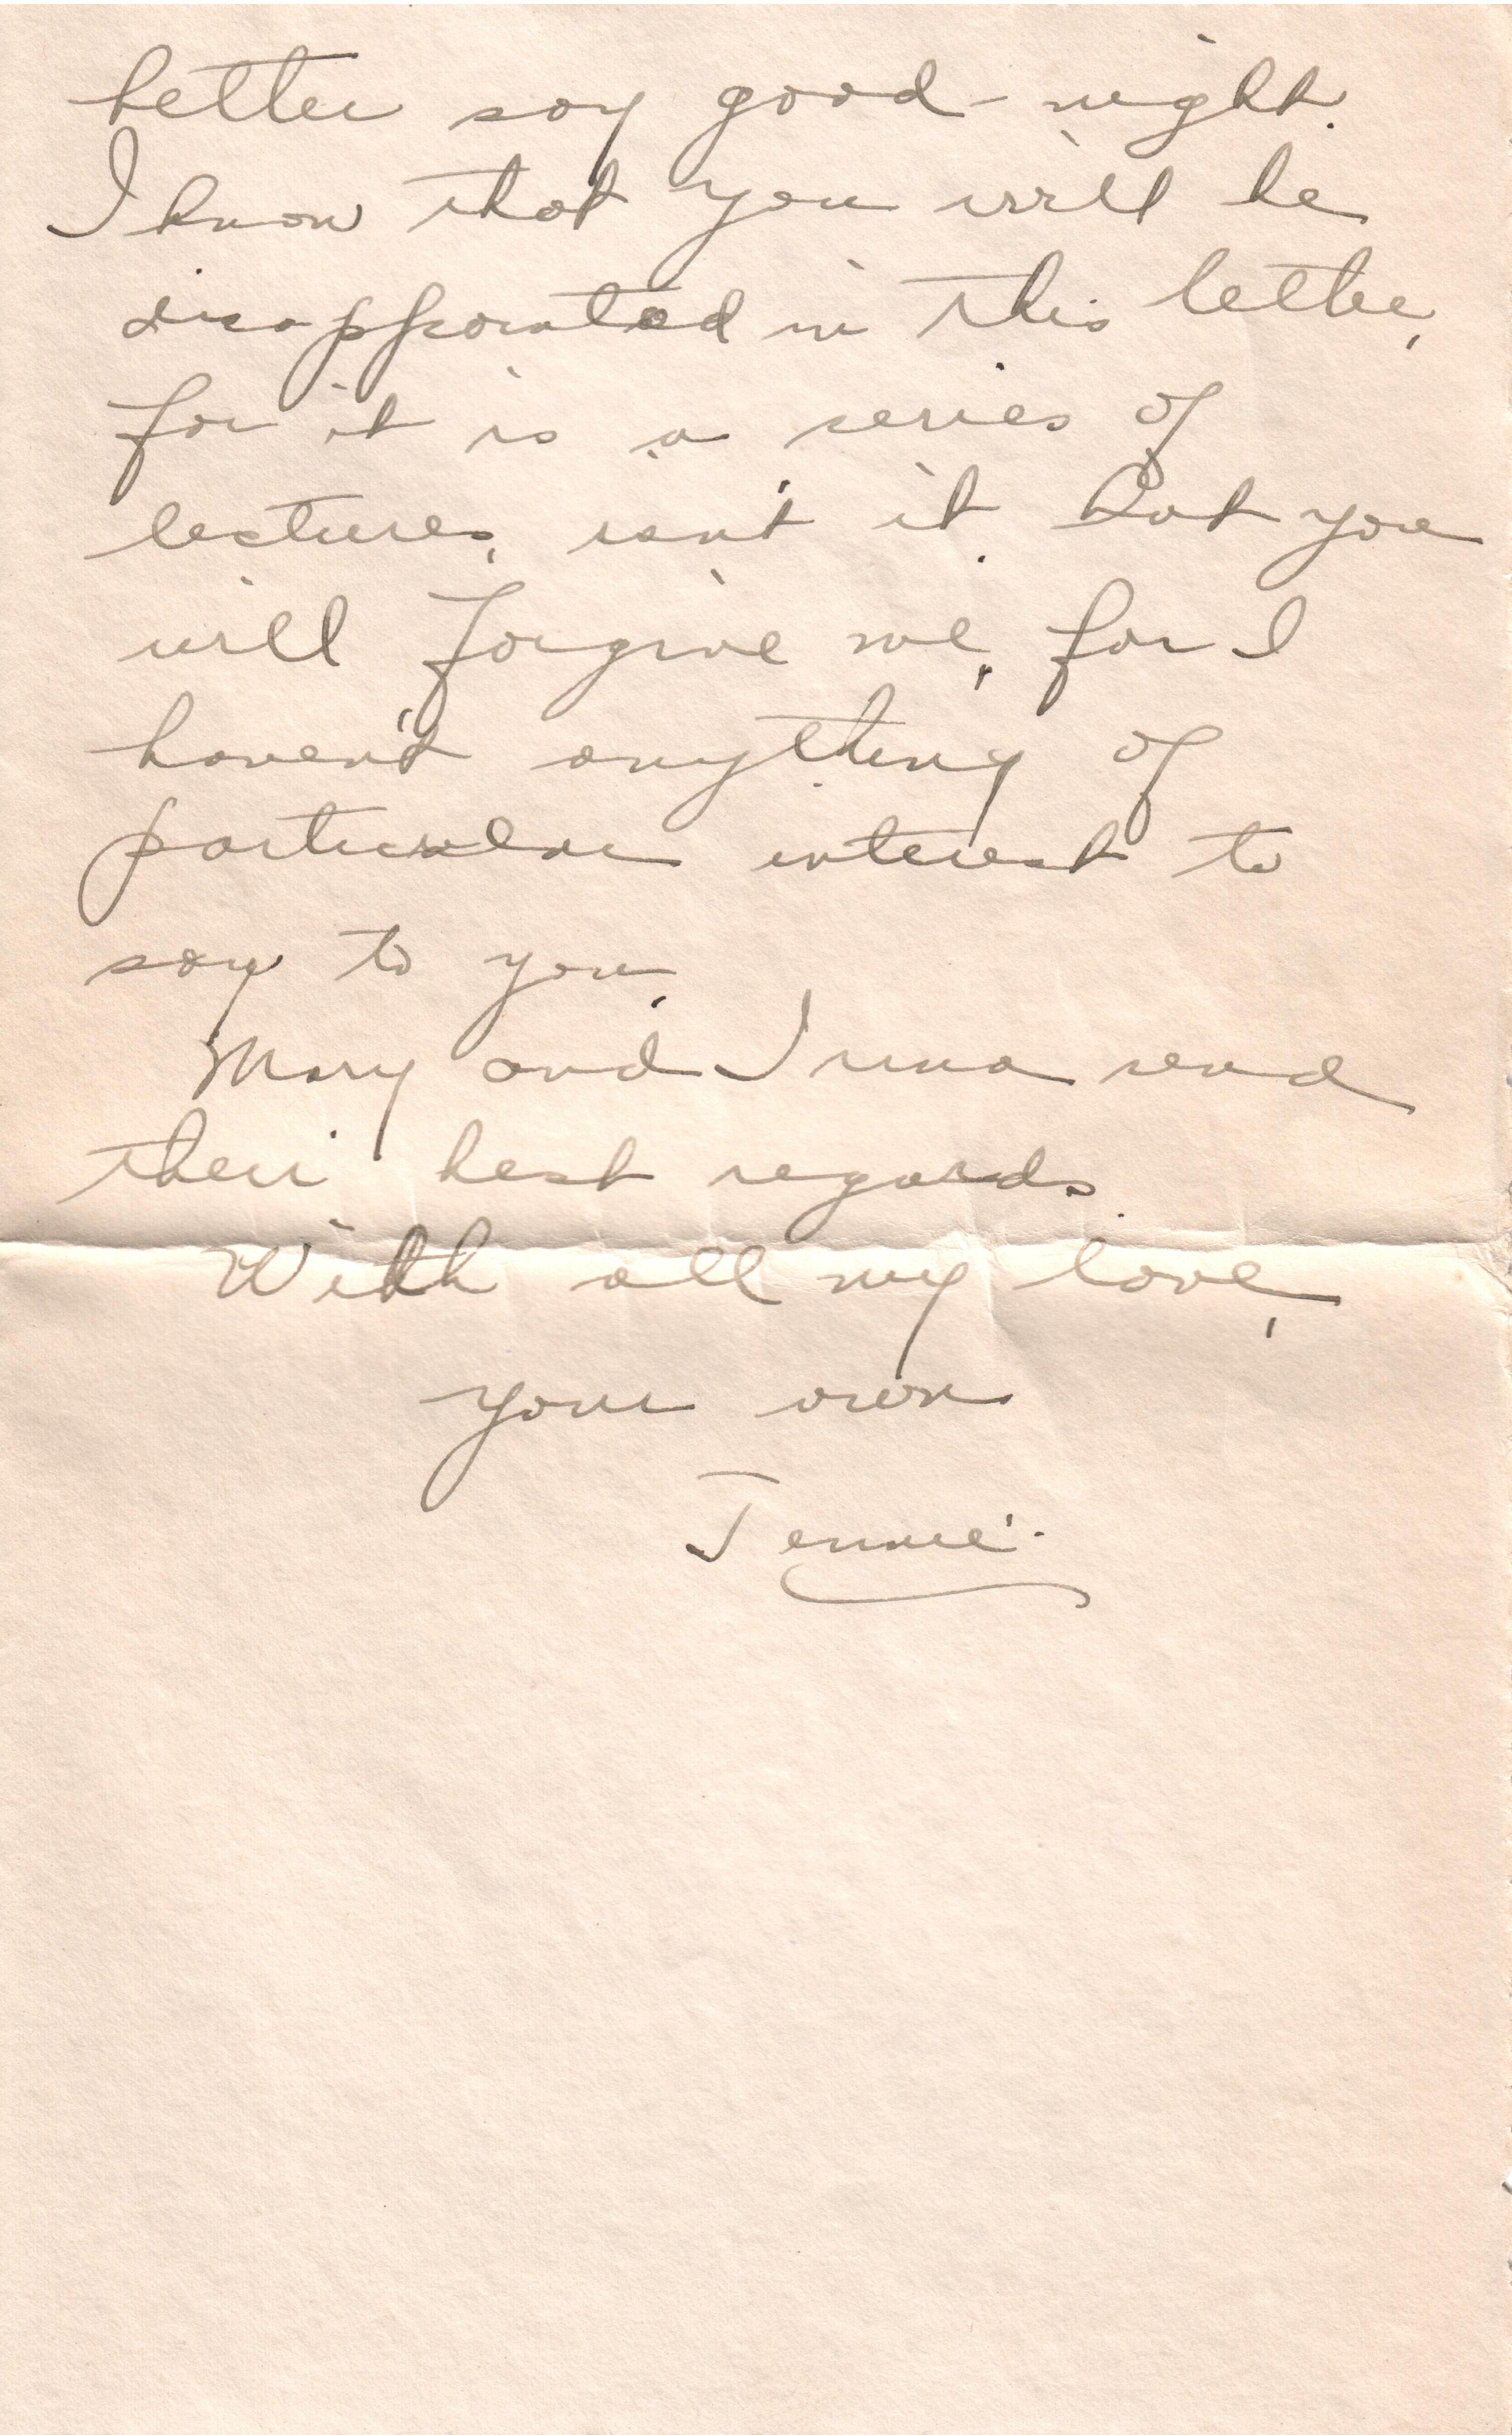 better say good-night.
I know that you will be
disappointed in this letter,
for it is a series of
lectures, isn't it. But you
will forgive me, for I
haven't anything of
particular interest to
say to you.
Mary and Irma send
their best regards.
With all my love,
your own
Jennie.